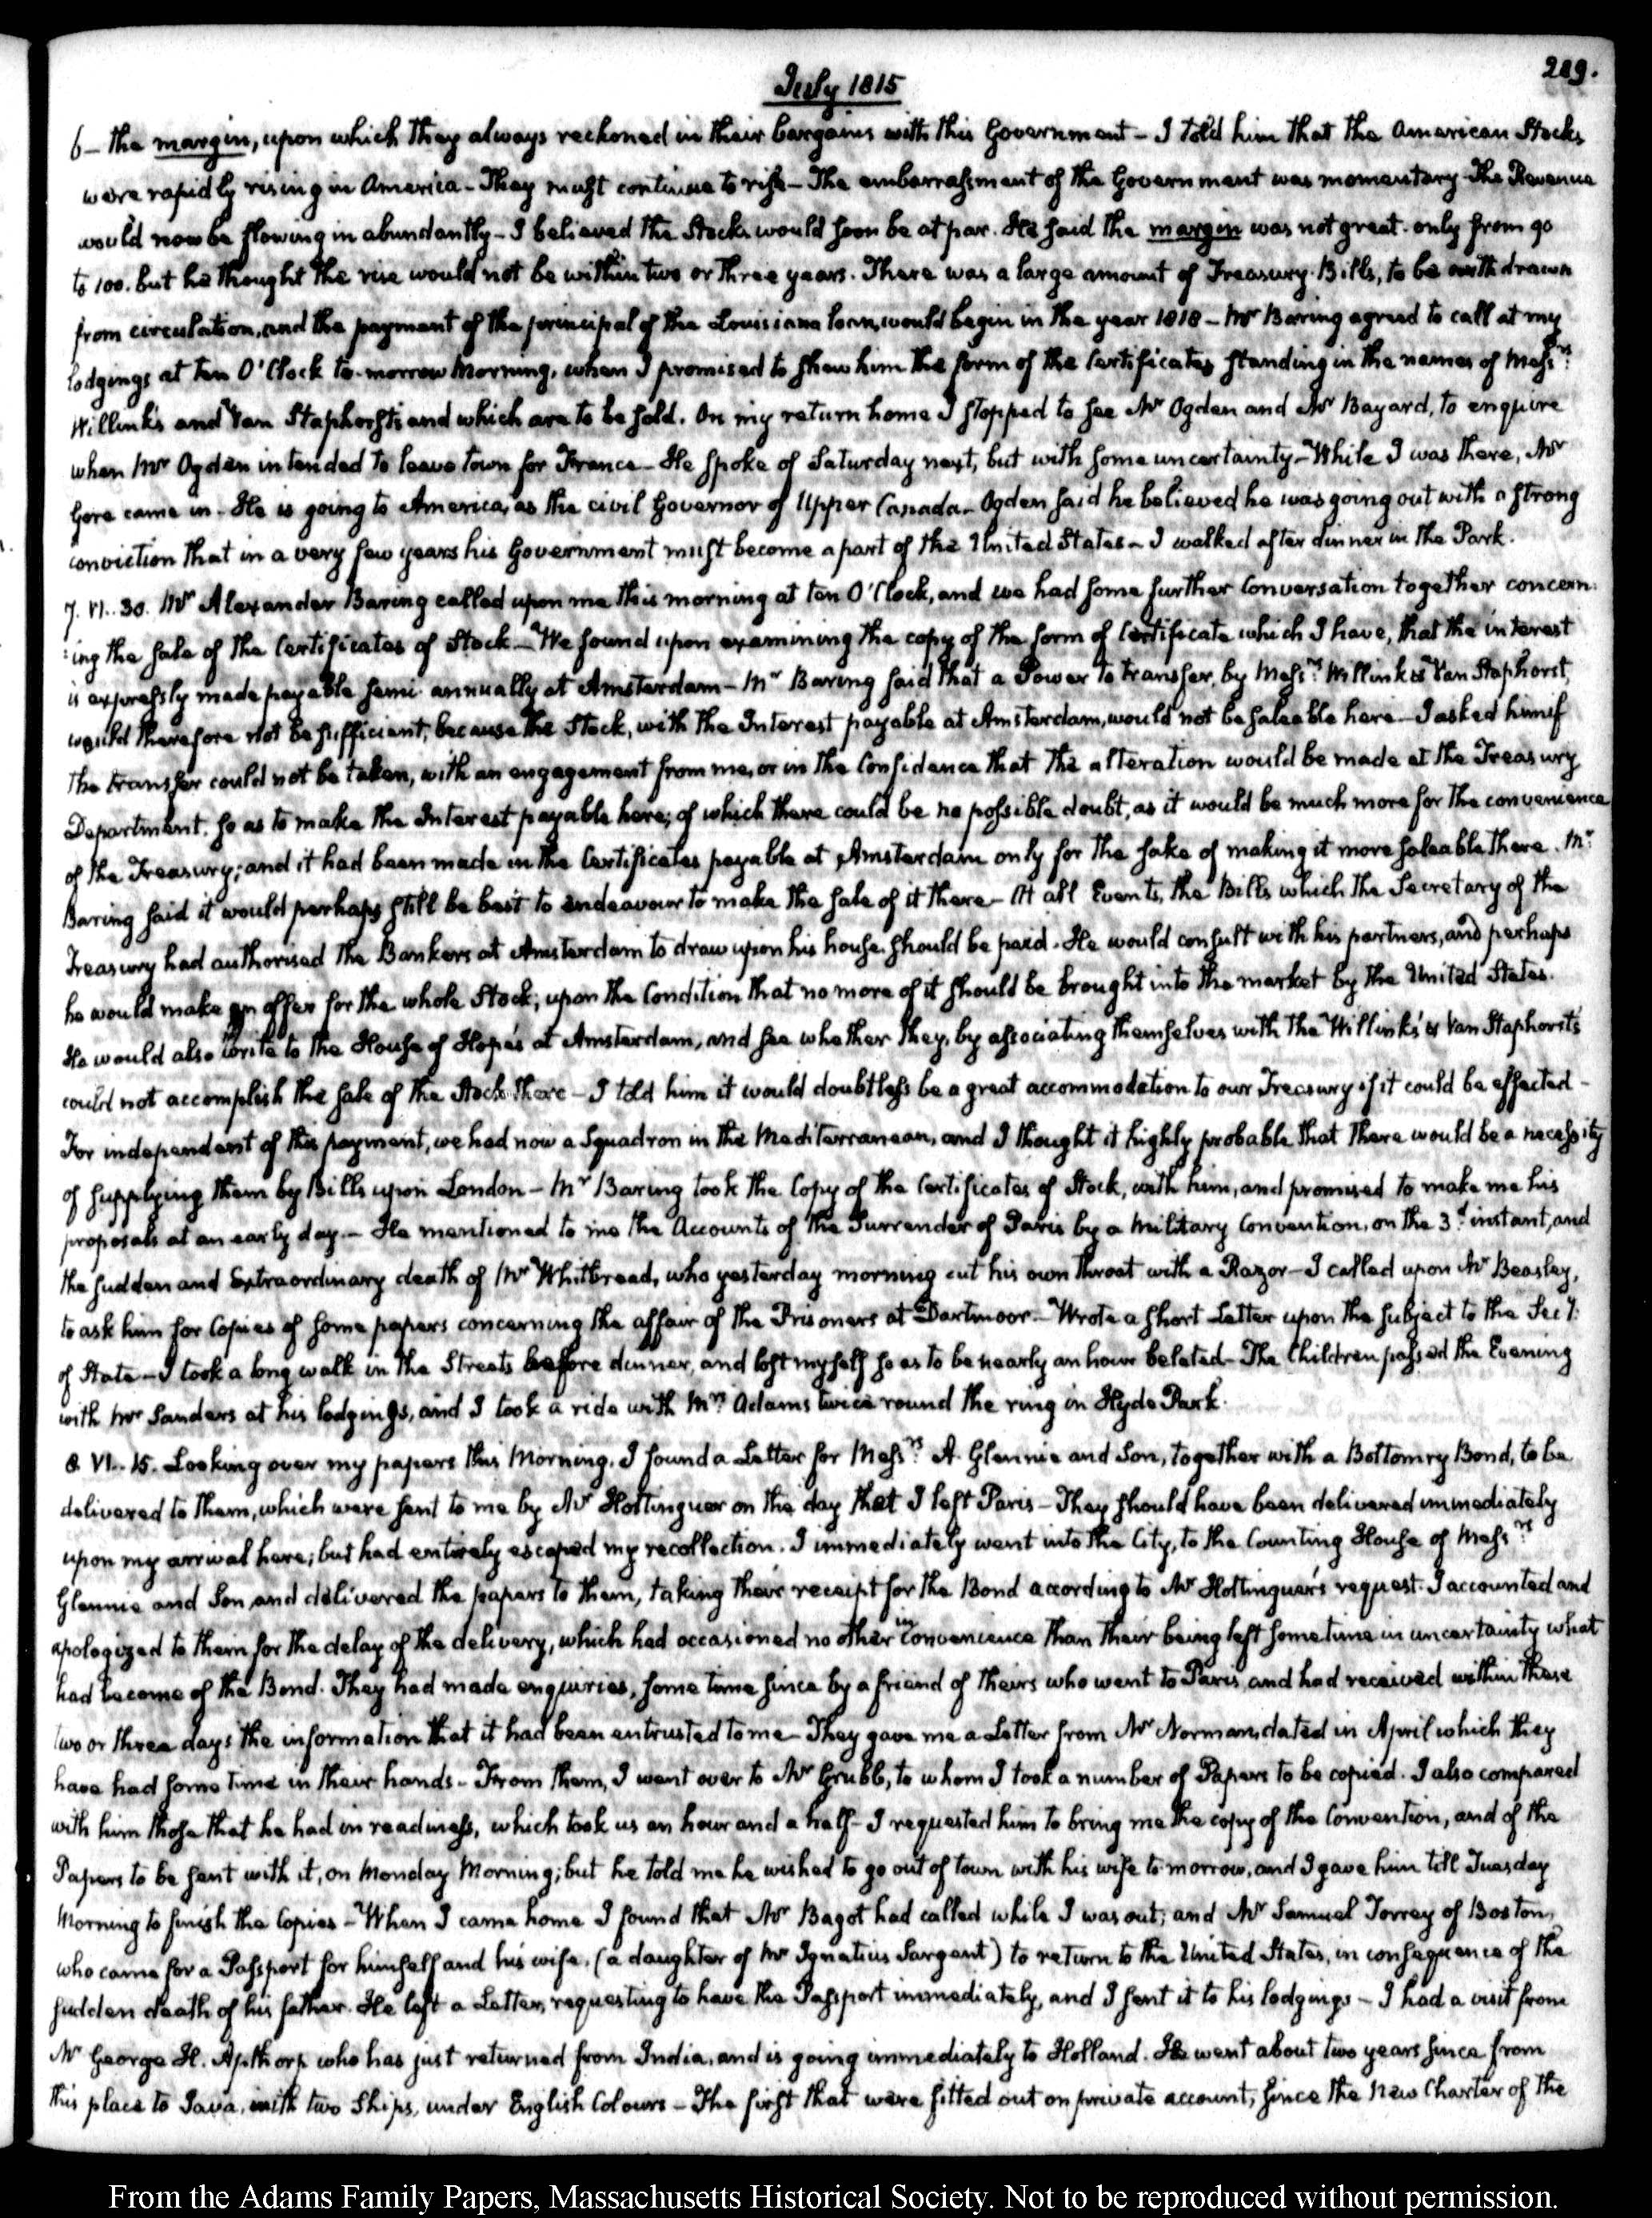 289.
July 1815
6 — the margin, upon which they always reckoned in their bargains with this Government — I told him that the American Stocks
were rapidly rising in America — They must continue to rise — The embarrassment of the Government was momentary — The Revenue
would now be flowing in abundantly — I believed the Stocks would soon be at par. He said the margin was not great. only from 90
to 100. but he thought the rise would not be within two or three years. There was a large amount of Treasury-Bills, to be withdrawn
from circulation, and the payment of the principal of the Louisiana loan, would begin in the year 1818 — Mr Baring agreed to call at my
lodgings at ten O'Clock to-morrow Morning, when I promised to shew him the form of the Certificates standing in the names of Messrs
Willinks and Van Staphorsts and which are to be sold. On my return home I stopped to see Mr Ogden and Mr Bayard, to enquire
when Mr Ogden intended to leave town for France — He spoke of Saturday next, but with some uncertainty — While I was there, Mr
Gore came in — He is going to America, as the civil Governor of Upper Canada — Ogden said he believed he was going out with a strong
conviction that in a very few years his Government must become a part of the United States — I walked after dinner in the Park.
7. VI. 30. Mr Alexander Baring called upon me this morning at ten O'Clock, and we had some further Conversation together concern:
:ing the sale of the Certificates of Stock — We found upon examining the copy of the form of Certificate which I have, that the interest
is expressly made payable semi-annually at Amsterdam — Mr Baring said that a Power to transfer, by Messrs Willink & Van Staphorst,
would therefore not be sufficient, because the Stock, with the Interest payable at Amsterdam, would not be saleable here — I asked him if
the transfer could not be taken, with an engagement from me, or in the Confidence that the alteration would be made at the Treasury
Department, so as to make the Interest payable here; of which there could be no possible doubt, as it would be much more for the convenience
of the Treasury; and it had been made in the Certificates payable at Amsterdam only for the sake of making it more saleable there. Mr
Baring said it would perhaps still be best to endeavour to make the sale of it there — At all Events, the Bills which the Secretary of the
Treasury had authorised the Bankers at Amsterdam to draw upon his house should be paid. He would consult with his partners, and perhaps
he would make an offer for the whole Stock, upon the Condition that no more of it should be brought into the market by the United States.
He would also write to the House of Hope's at Amsterdam, and see whether they, by associating themselves with the Willink's & Van Staphorsts
could not accomplish the sale of the Stock there — I told him it would doubtless be a great accommodation to our Treasury if it could be effected —
For independent of this payment, we had now a Squadron in the Mediterranean, and I thought it highly probable that there would be a necessity
of supplying them by Bills upon London — Mr Baring took the Copy of the Certificates of Stock, with him, and promised to make me his
proposals at an early day — He mentioned to me the Accounts of the Surrender of Paris by a Military Convention, on the 3d instant, and
the sudden and Extraordinary death of Mr Whitbread, who yesterday morning cut his own throat with a Razor — I called upon Mr Beasley,
to ask him for Copies of some papers concerning the affair of the Prisoners at Dartmoor — Wrote a short Letter upon the subject to the Secy:
of State — I took a long walk in the Streets before dinner, and lost myself so as to be nearly an hour belated — The Children passed the Evening
with Mr Sanders at his lodgings, and I took a ride with Mrs Adams twice round the ring in Hyde Park.
8. VI. 15. Looking over my papers this Morning, I found a Letter for Messrs A. Glennie and Son, together with a Bottomry Bond, to be
delivered to them, which were sent to me by Mr Hottinguer on the day that I left Paris — They should have been delivered immediately
upon my arrival here; but had entirely escaped my recollection. I immediately went into the City, to the Counting House of Messrs
Glennie and Son, and delivered the papers to them, taking their receipt for the Bond according to Mr Hottinguer's request. I accounted and
apologized to them for the delay of the delivery, which had occasioned no other inconvenience than their being left sometime in uncertainty what
had become of the Bond. They had made enquiries, some time since by a friend of theirs who went to Paris, and had received within these
two or three days the information that it had been entrusted to me — They gave me a Letter from Mr Norman, dated in April which they
have had some time in their hands — From them, I went over to Mr Grubb, to whom I took a number of Papers to be copied. I also compared
with him those that he had in readiness, which took us an hour and a half — I requested him to bring me the copy of the Convention, and of the
Papers to be sent with it, on Monday Morning; but he told me he wished to go out of town with his wife to morrow, and I gave him till Tuesday
Morning to finish the Copies — When I came home I found that Mr Bagot had called while I was out; and Mr Samuel Torrey of Boston,
who came for a Passport for himself and his wife, (a daughter of Mr Ignatius Sargent) to return to the United States, in consequence of the
sudden death of his father. He left a Letter, requesting to have the Passport immediately, and I sent it to his lodgings — I had a visit from
Mr George H. Apthorp who has just returned from India, and is going immediately to Holland. He went about two years since from
this place to Java, with two Ships, under English Colours — The first that were fitted out on private account, since the New Charter of the
From the Adams Family Papers, Massachusetts Historical Society. Not to be reproduced without permission.